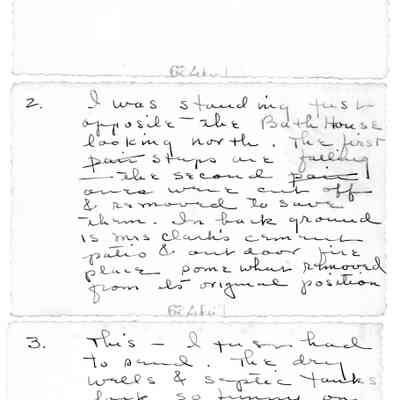 2. I was standing just
opposite the Bath House
looking north. The first
pair steps are falling
- the second pair
ones were cut off
& removed to save
them. In back ground
is Mrs Clark's cement
patio & outdoor fire
place somewhat removed
from its original position
3. This - I just had
to send. The dry
wells & septic tanks
look so funny on